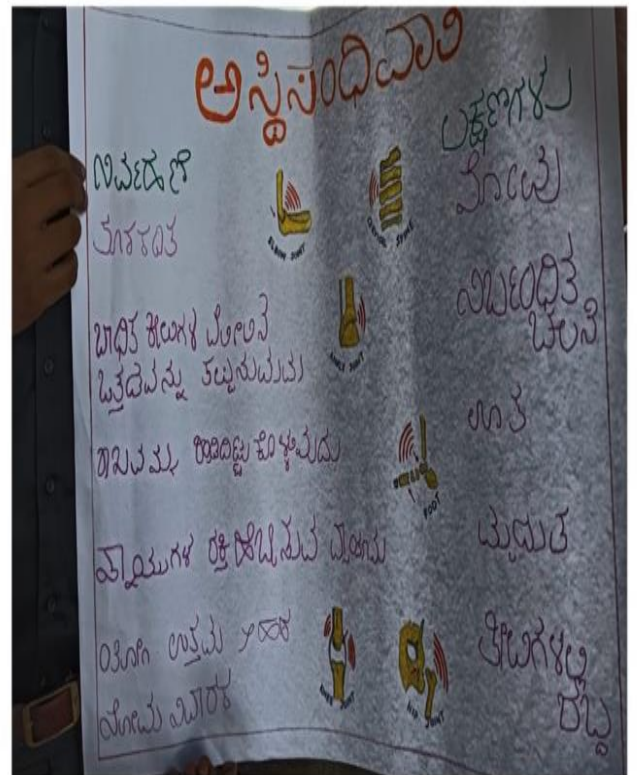 ಅಸ್ಥಿಸಂಧಿವಾತ
ನಿರ್ವಹಣೆ
ತೂಕ ಕಡಿತ
ಬಾಧಿತ ಕೀಲುಗಳ ಮೇಲಿನ
ಒತ್ತಡವನ್ನು ತಪ್ಪಿಸುವುದು
ಕಾಪಾಡಿಟ್ಟುಕೊಳ್ಳುವುದು
ಸ್ನಾಯುಗಳ ಶಕ್ತಿ ಹೆಚ್ಚಿಸುವ ವ್ಯಾಯಾಮ
ಉತ್ತಮ ಆಹಾರ
ನೋವು ನಿವಾರಕ
ELBOW JOINT
CERVICAL SPINE
ANKLE JOINT
FOOT
KNEE JOINT
HIP JOINT
ಲಕ್ಷಣಗಳು
ನೋವು
ನಿರ್ಬಂಧಿತ
ಚಲನೆ
ಊತ
ಮೃದುತ
ಕೀಲುಗಳಲ್ಲಿ
ಶಬ್ದ